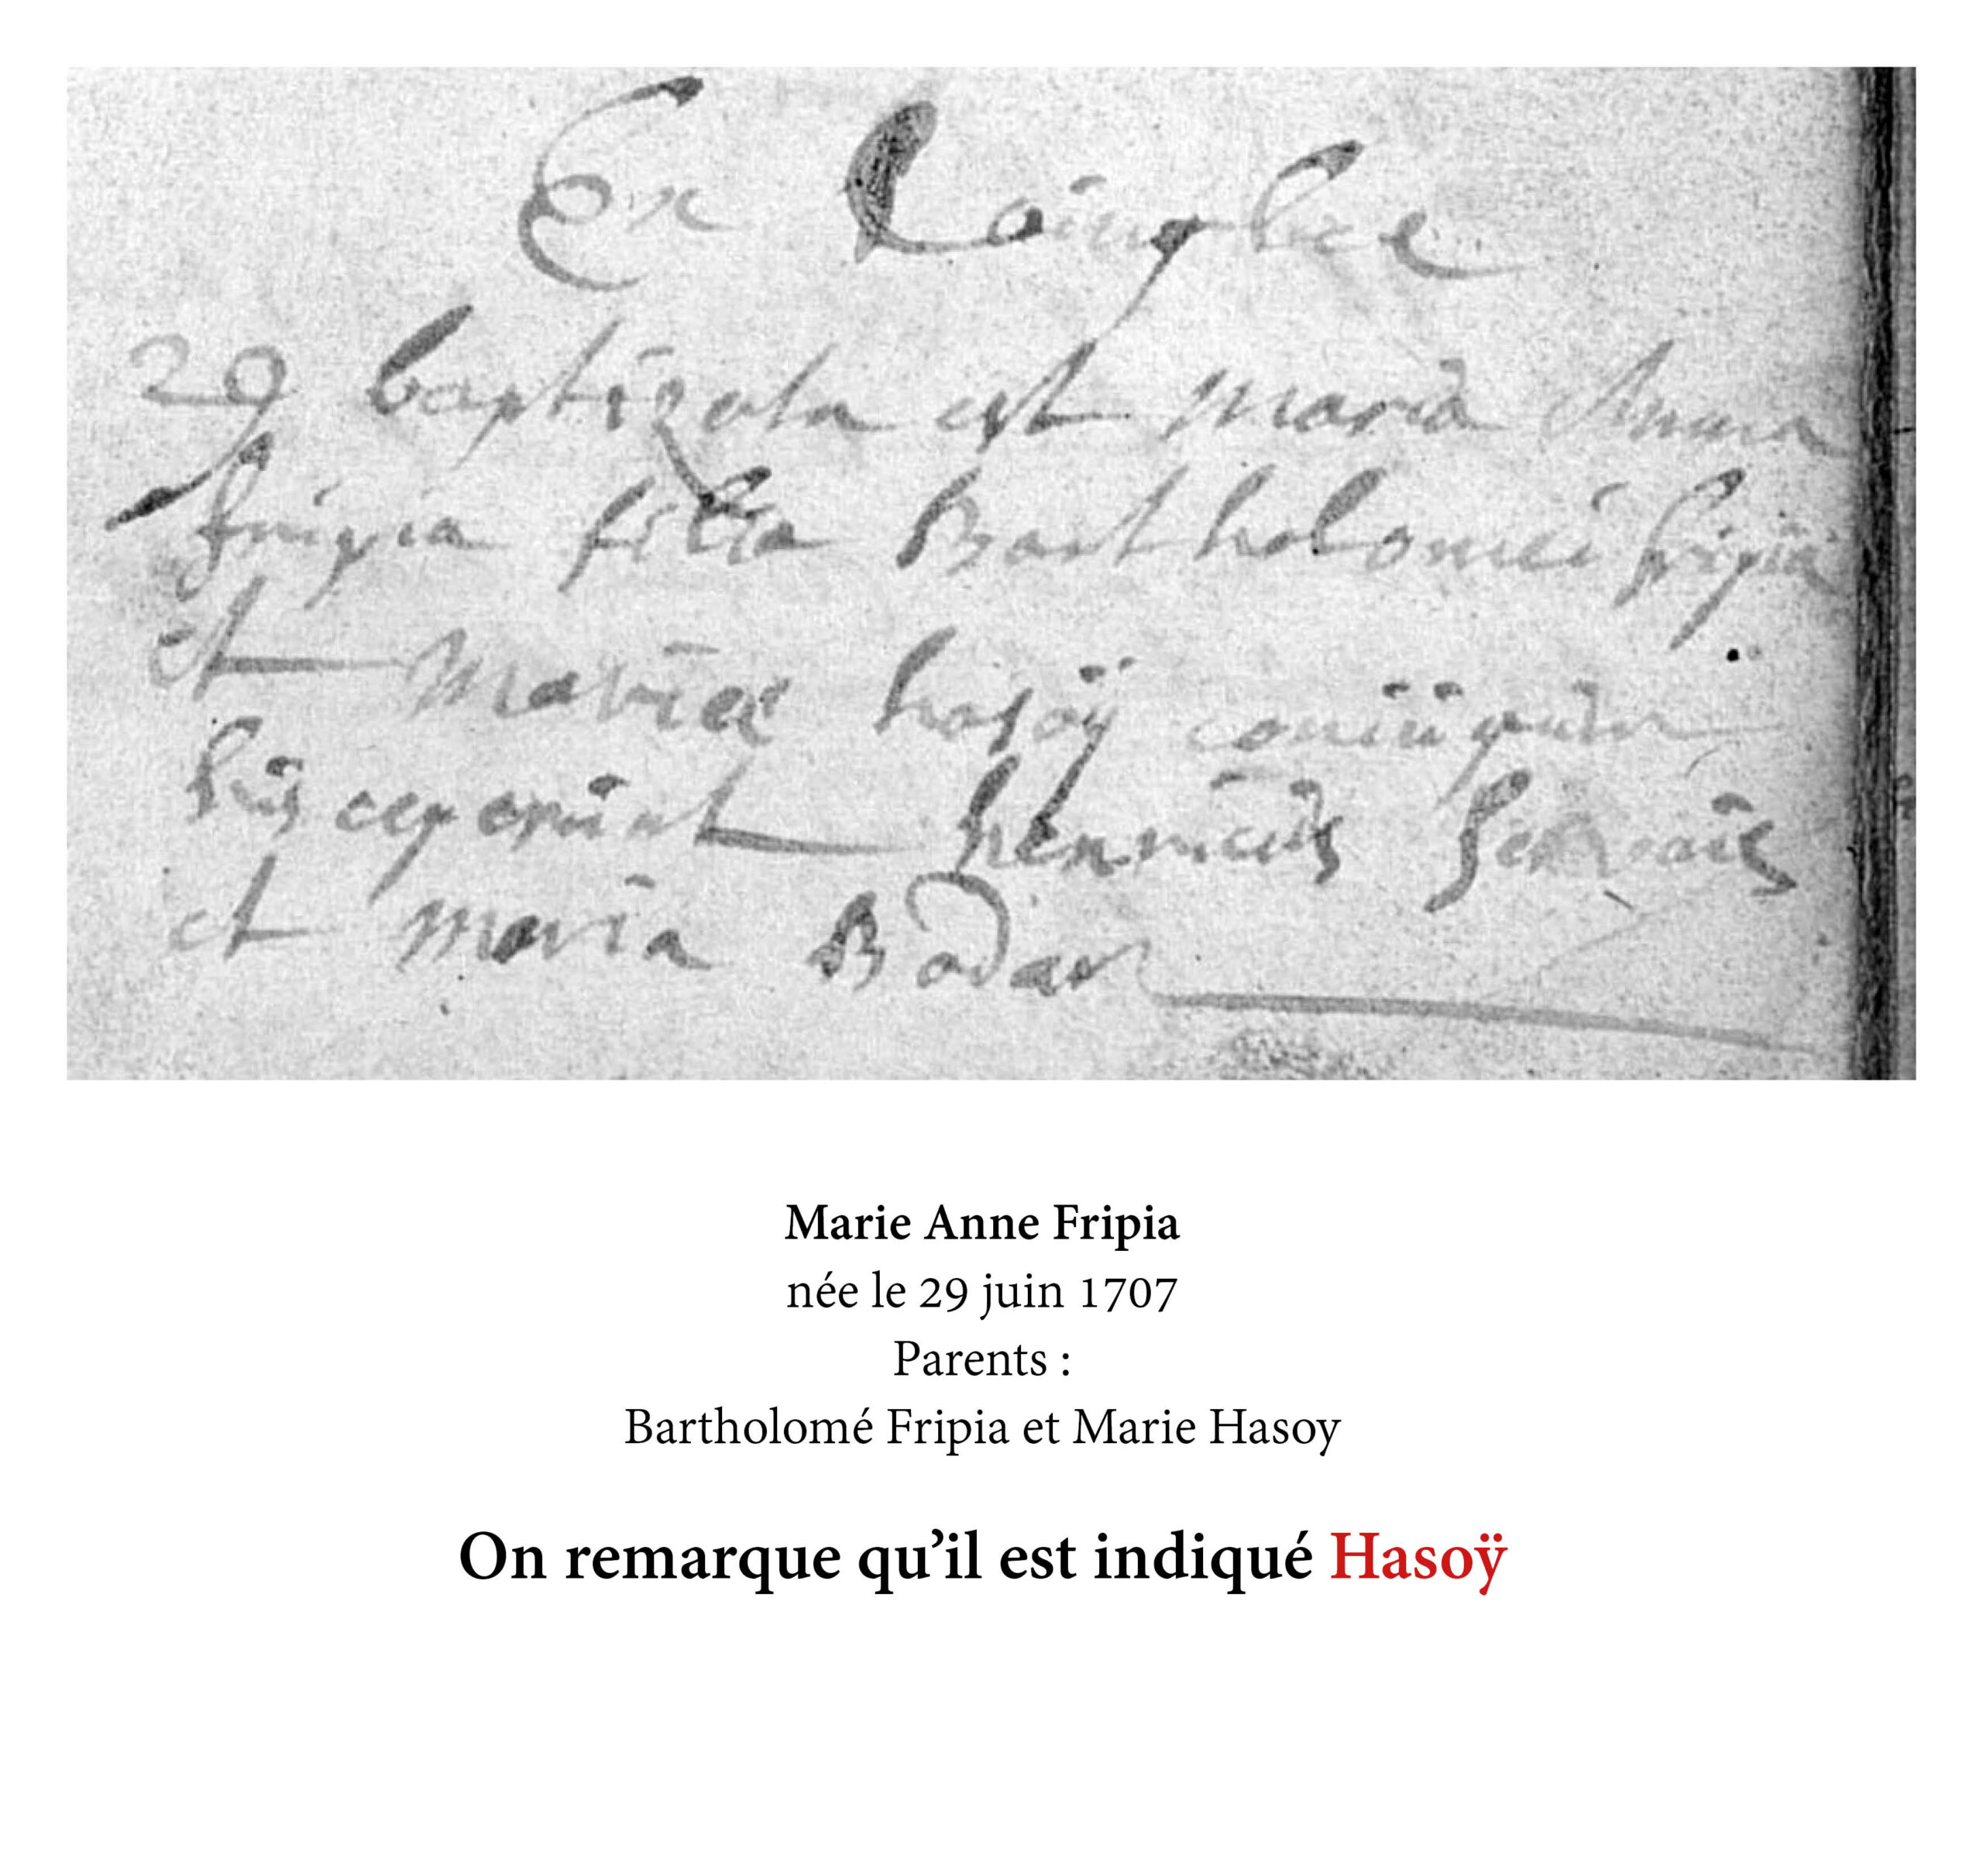 Ex Loingbee
29 baptizata est maria Anna
fripia filia Bartholomei fripia
et Mariæ hasoÿ coniugum
susceperunt henricus Servais
et maria Bodar
Marie Anne Fripia
née le 29 juin 1707
Parents :
Bartholomé Fripia et Marie Hasoy
On remarque qu’il est indiqué Hasoÿ